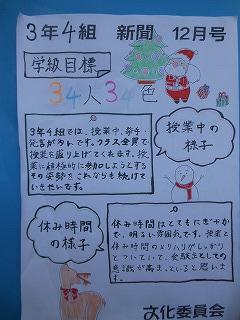 3年4組 新聞 12月号
学級目標
34人34色
3年4組では、授業中、挙手・
発言が多いです。クラス全員で
授業を盛り上げてくれます。授
業に積極的に参加しようとする
その姿勢をこれからも続けて
いきたいです。
授業中の
様子
休み時間
の様子
休み時間はとてもにぎやか
で、明るい雰囲気です。授業と
休み時間のメリハリがしっかり
とついていて、受験生としての
意識が高まっていると思いま
す。
文化委員会